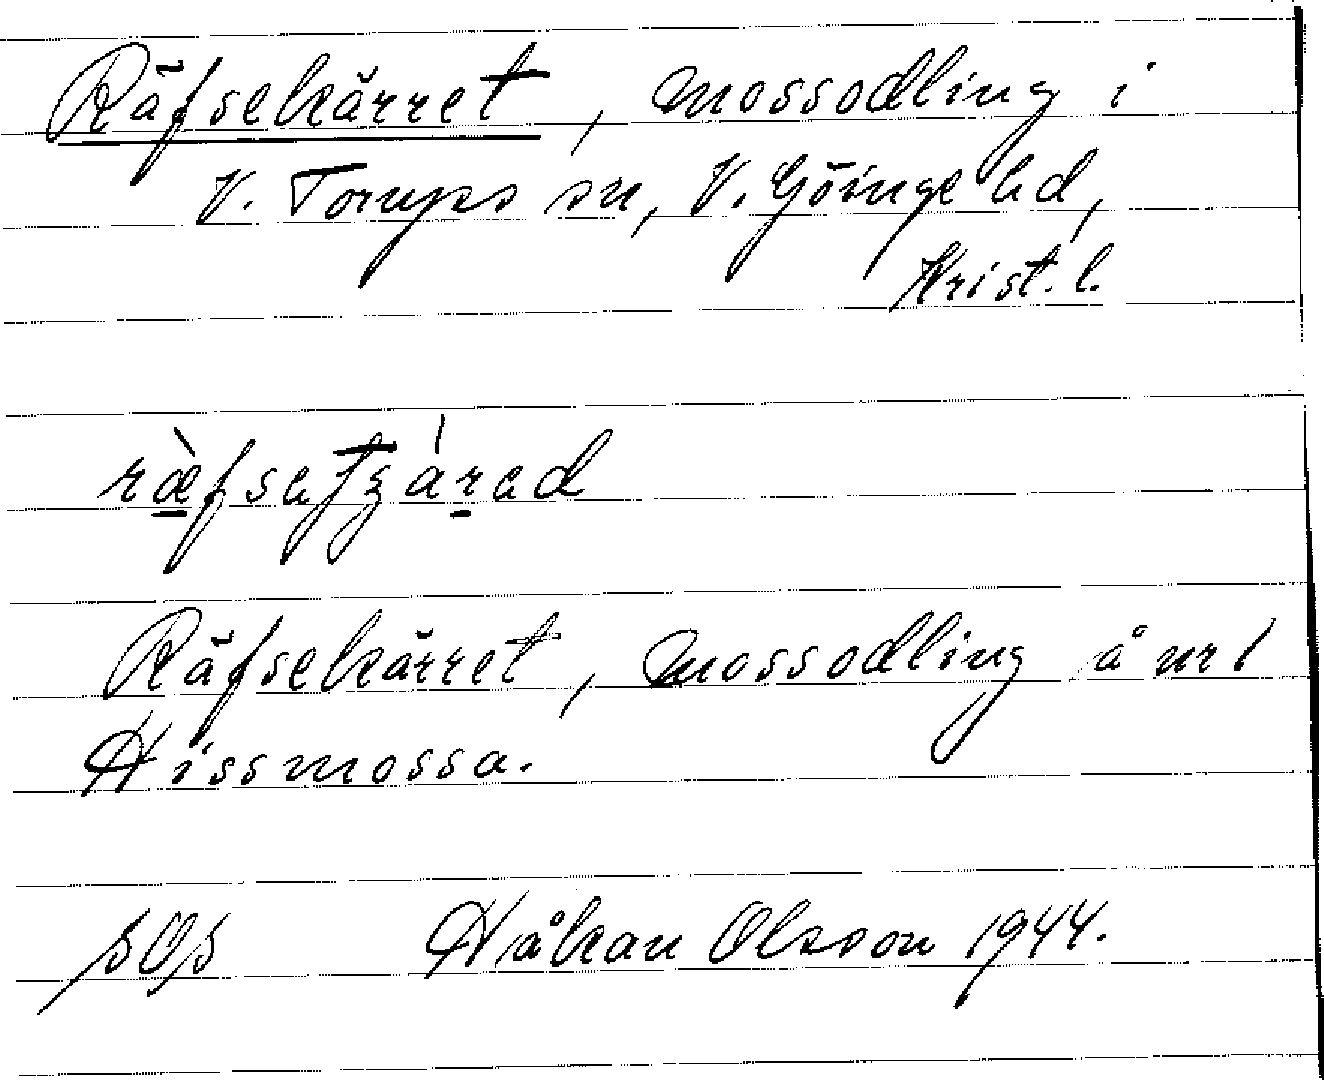 Räfsekärret, mossodling i
V. Torups sn, V. Göinge hd,
Krist. l.
Räfsekärret, mossodling å nr 1
Hissmossa.
Håkan Olsson 1944.